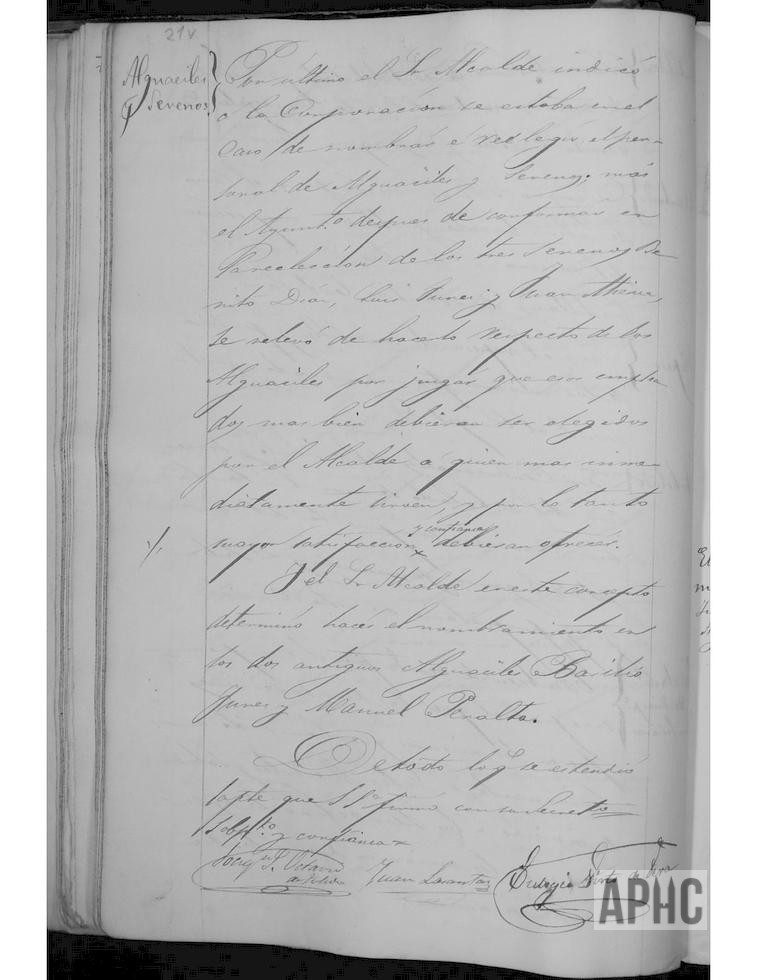 21v
Alguaciles
y Serenos
Por ultimo el Sr Alcalde indicó
a la Corporación se estaba en el
Caso de nombrar é reelegir el per-
sonal de Alguaciles y Serenos; mas
el Ayunt.o despues de conformar en
la reelección de los tres Serenos Be-
nito Diaz, Luis Funez y Juan
se relevó de hacerlo respecto de los
Alguaciles por juzgar que esos emplea
dos mas bien debieran ser elegidos
por el Alcalde á quien mas inme-
diatamente sirven, y por lo tanto
y confianza
mayor satisfaccion x debieran ofrecer.
Y el Sr Alcalde en este concepto
determinó hacer el nombramiento en
los dos antiguos Alguaciles Basilio
Funez y Manuel Peralta.
De todo lo q.e se estendió
la pte que SSa firmó con su Secreto
y confianza x
Juan
Eulogio
APHC